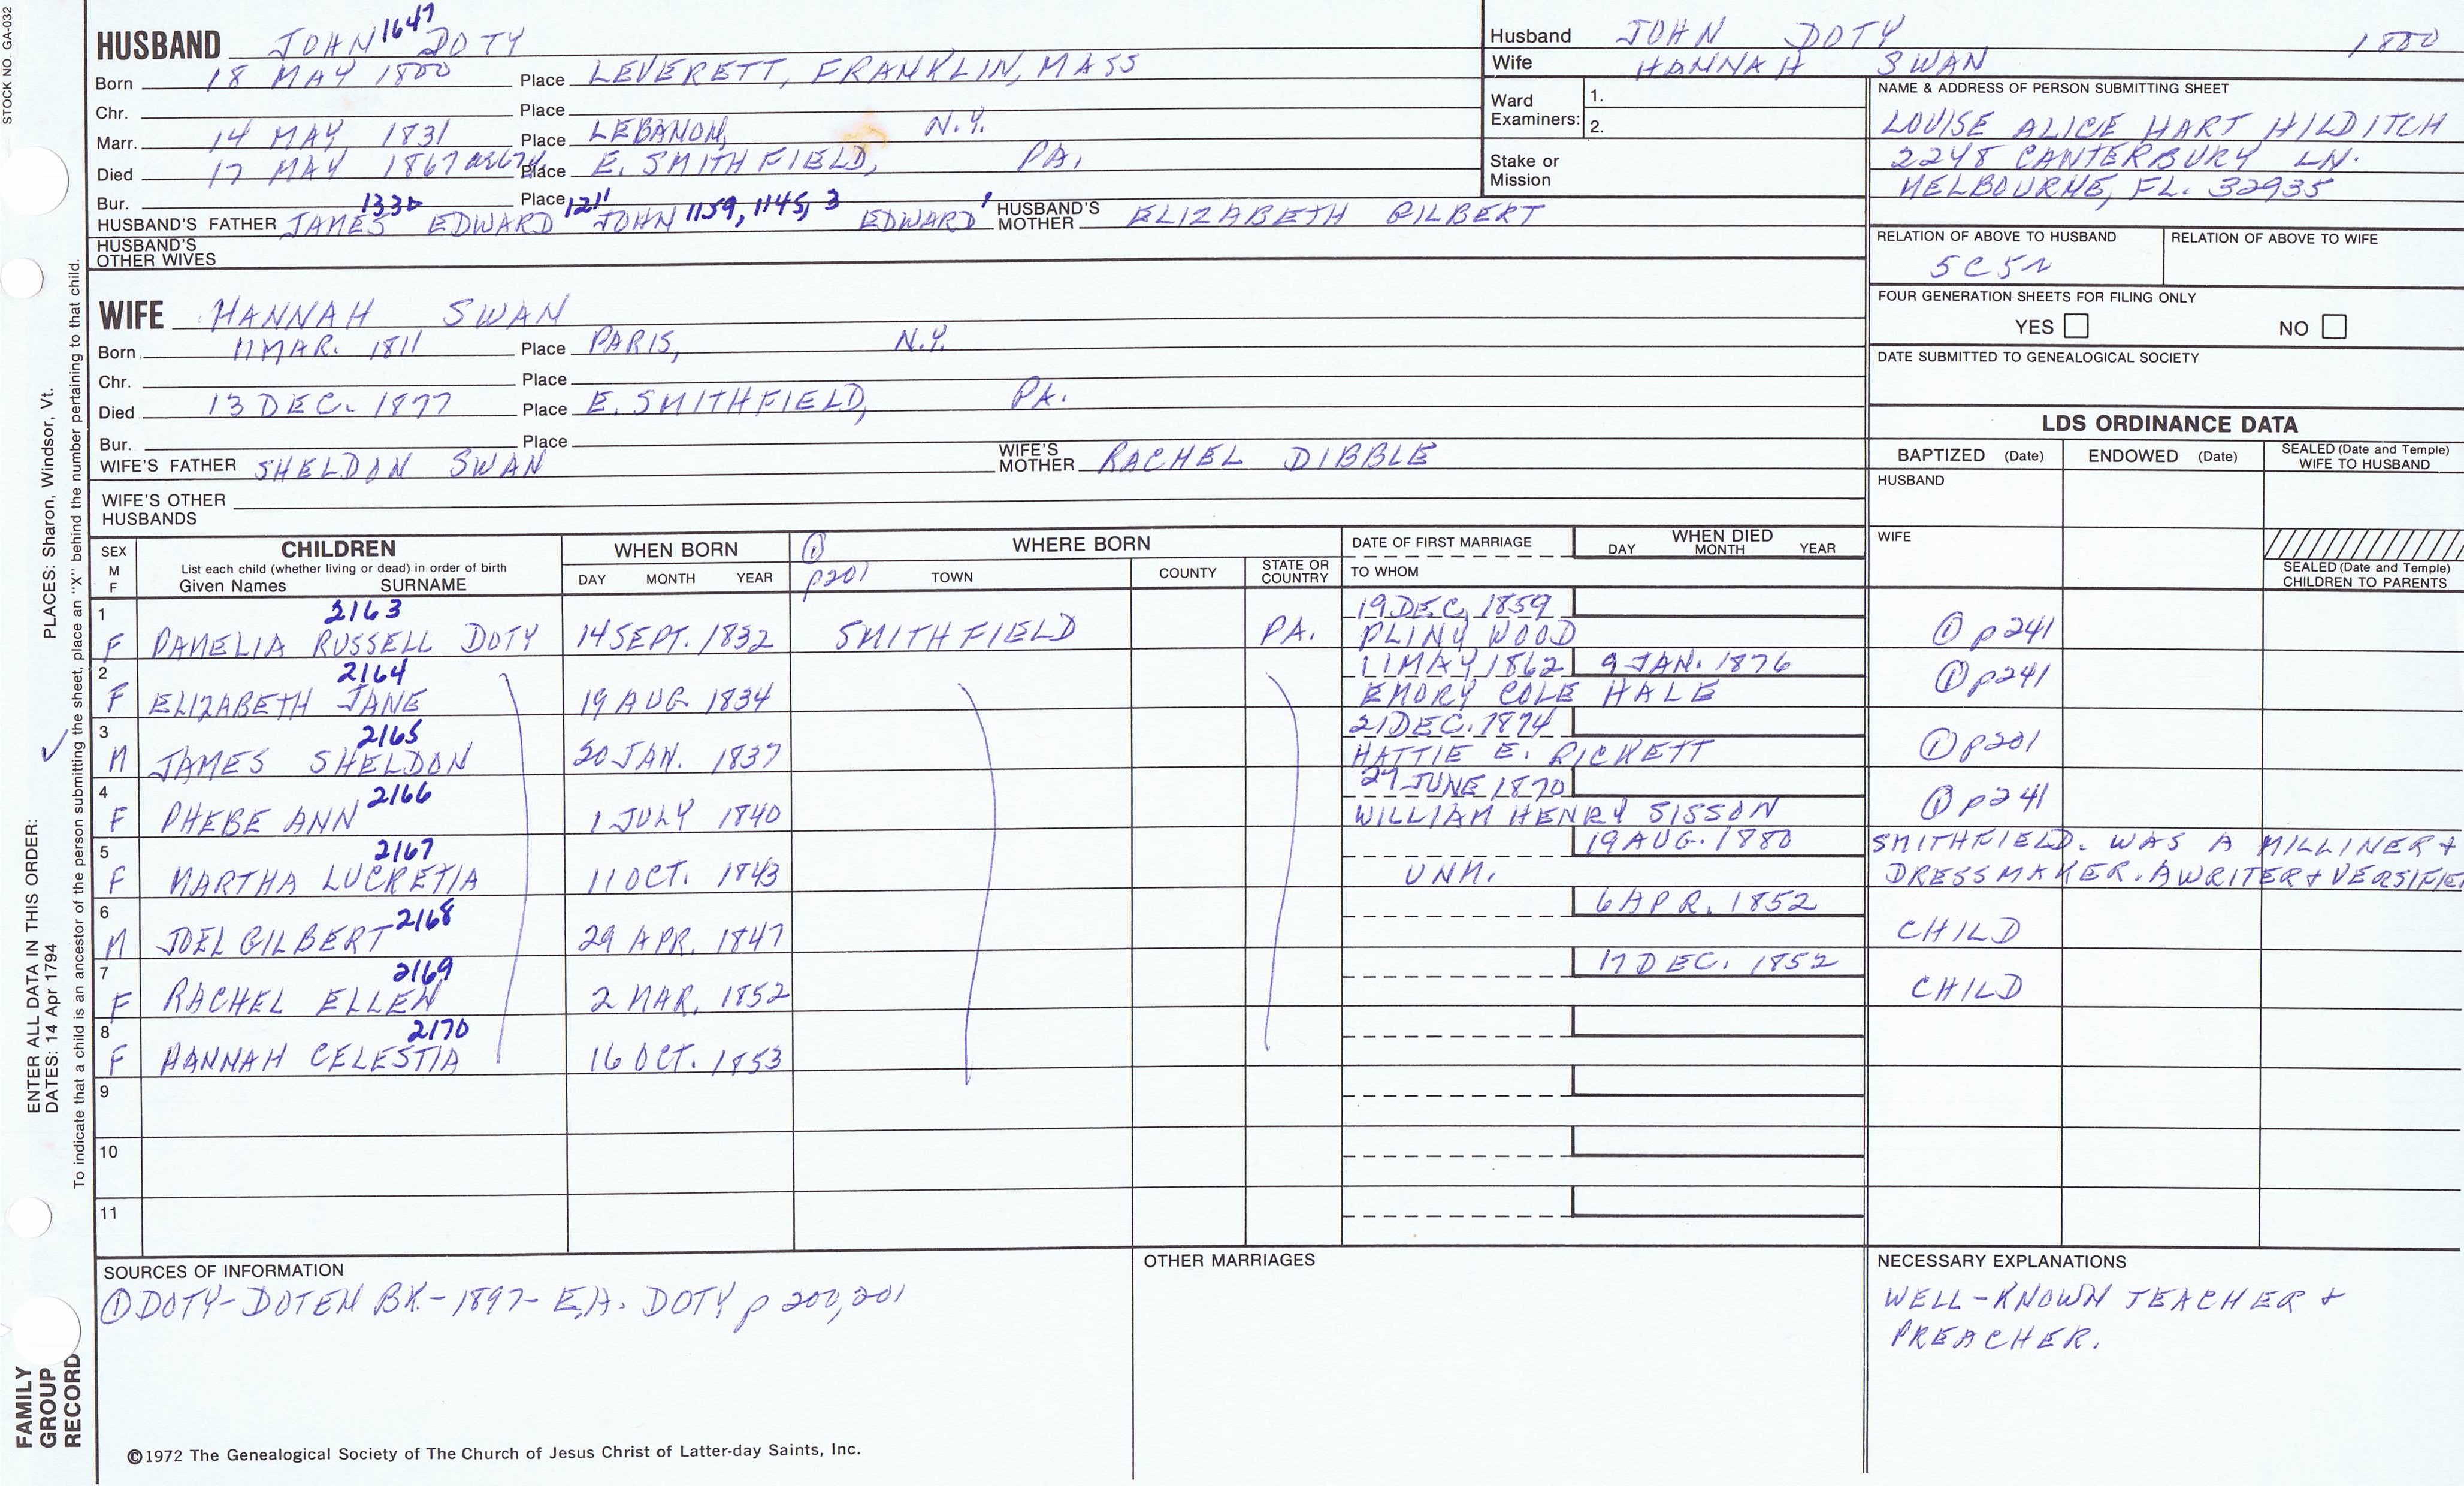 STOCK NO. GA-032
HUSBAND JOHN 1647 DOTY
Born 18 MAY 1800 Place LEVERETT, FRANKLIN, MASS
Chr. Place
Marr. 14 MAY, 1831 Place LEBANON, N.Y.
Died 17 MAY 1867 Place E. SMITHFIELD, PA.
Bur. Place
HUSBAND'S FATHER JAMES 1330 EDWARD 1211 JOHN 1159, 1145, 3 EDWARD 1 HUSBAND'S MOTHER ELIZABETH GILBERT
HUSBAND'S OTHER WIVES
WIFE HANNAH SWAN
Born 11 MAR. 1811 Place PARIS, N.Y.
Chr. Place
Died 13 DEC. 1877 Place E. SMITHFIELD, PA.
Bur. Place
WIFE'S FATHER SHELDON SWAN WIFE'S MOTHER RACHEL DIBBLE
WIFE'S OTHER HUSBANDS
Husband JOHN DOTY 1800
Wife HANNAH SWAN
Ward Examiners: 1.
2.
Stake or Mission
NAME & ADDRESS OF PERSON SUBMITTING SHEET
LOUISE ALICE HART HILDITCH
2248 CANTERBURY LN.
MELBOURNE, FL. 32935
RELATION OF ABOVE TO HUSBAND RELATION OF ABOVE TO WIFE
5C5R
FOUR GENERATION SHEETS FOR FILING ONLY
YES NO
DATE SUBMITTED TO GENEALOGICAL SOCIETY
LDS ORDINANCE DATA
BAPTIZED (Date) ENDOWED (Date) SEALED (Date and Temple) WIFE TO HUSBAND
HUSBAND
WIFE
SEALED (Date and Temple) CHILDREN TO PARENTS
SEX M F
CHILDREN
List each child (whether living or dead) in order of birth
Given Names SURNAME
WHEN BORN
DAY MONTH YEAR
① p201
WHERE BORN
TOWN COUNTY STATE OR COUNTRY
DATE OF FIRST MARRIAGE
TO WHOM
WHEN DIED
DAY MONTH YEAR
1 2163 19 DEC, 1859
F PAMELIA RUSSELL DOTY 14 SEPT. 1832 SMITHFIELD PA. PLINY WOOD ① p241
2 2164 11 MAY 1862 9 JAN. 1876
F ELIZABETH JANE 19 AUG 1834 EMORY COLE HALE ① p241
3 2165 21 DEC. 1874
M JAMES SHELDON 20 JAN. 1837 HATTIE E. PICKETT ① p201
4 2166 27 JUNE 1870
F PHEBE ANN 1 JULY 1840 WILLIAM HENRY SISSON ① p241
5 2167 19 AUG. 1880 SMITHFIELD. WAS A MILLINER +
F MARTHA LUCRETIA 11 OCT. 1843 UNM. DRESSMAKER. A WRITER + VERSIFIE
6 2168 6 APR. 1852
M JOEL GILBERT 29 APR. 1847 CHILD
7 2169 17 DEC. 1852
F RACHEL ELLEN 2 MAR. 1852 CHILD
8 2170
F HANNAH CELESTIA 16 OCT. 1853
9
10
11
SOURCES OF INFORMATION
① DOTY-DOTEN BK-1897- E.A. DOTY p 200, 201
OTHER MARRIAGES
NECESSARY EXPLANATIONS
WELL-KNOWN TEACHER +
PREACHER.
©1972 The Genealogical Society of The Church of Jesus Christ of Latter-day Saints, Inc.
FAMILY
GROUP
RECORD
ENTER ALL DATA IN THIS ORDER:
DATES: 14 Apr 1794
PLACES: Sharon, Windsor, Vt.
To indicate that a child is an ancestor of the person submitting the sheet, place an "X" behind the number pertaining to that child.